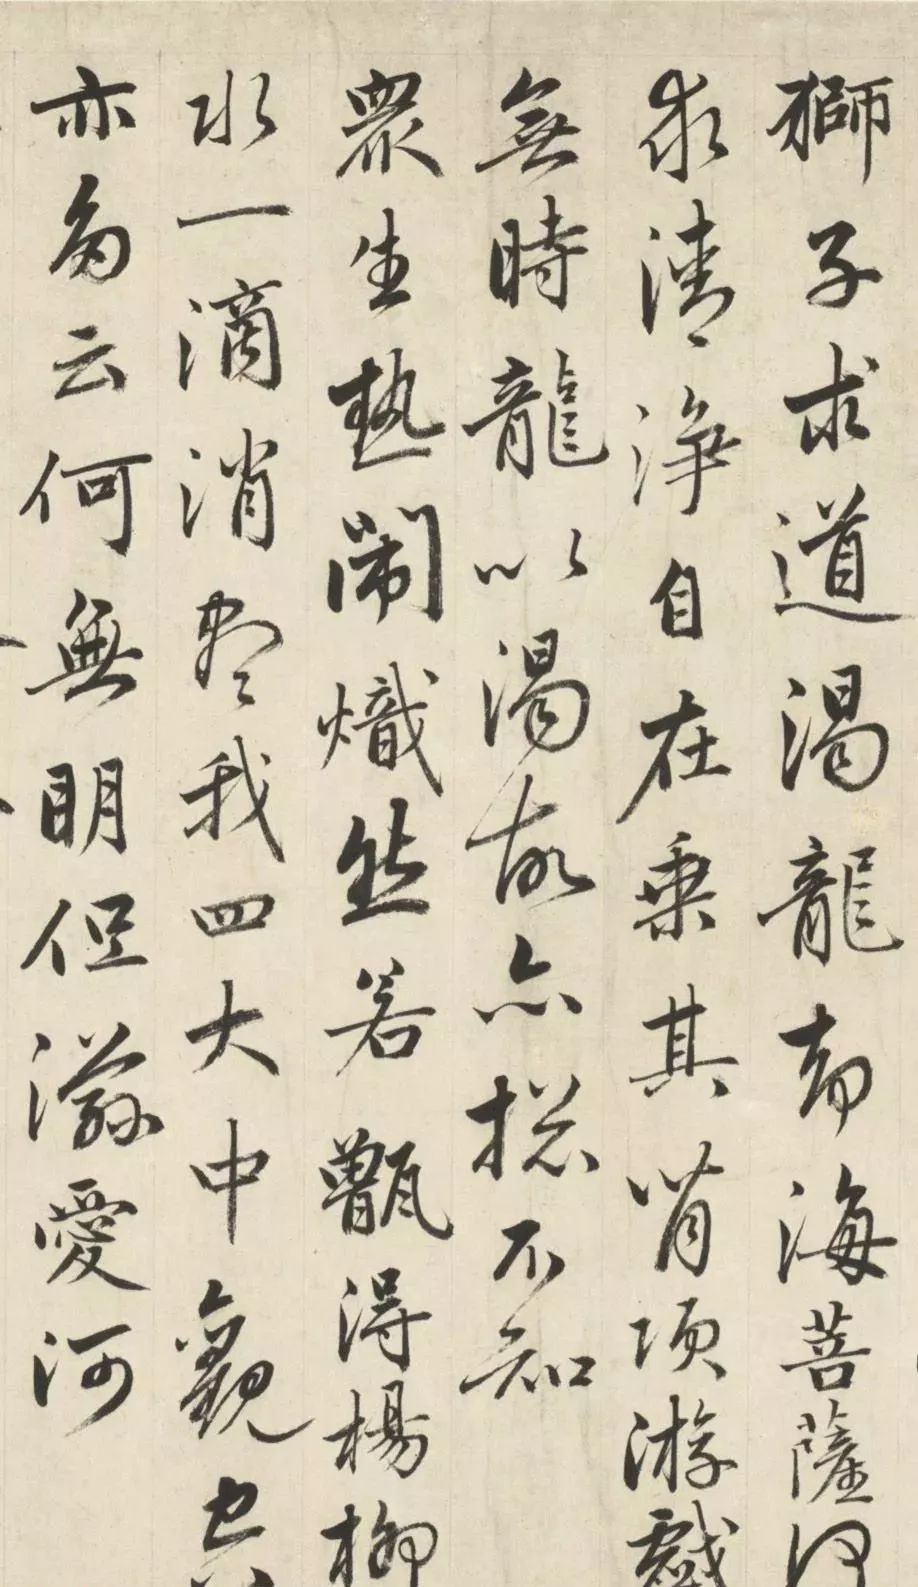 獅子求道渴龍海菩薩
求清淨自在乘其背項游戲
無時龍以渴故亦總不知
眾生熱鬧熾然若甑得楊柳
水一滴消盡我四大中觀
亦云何無明但愛河